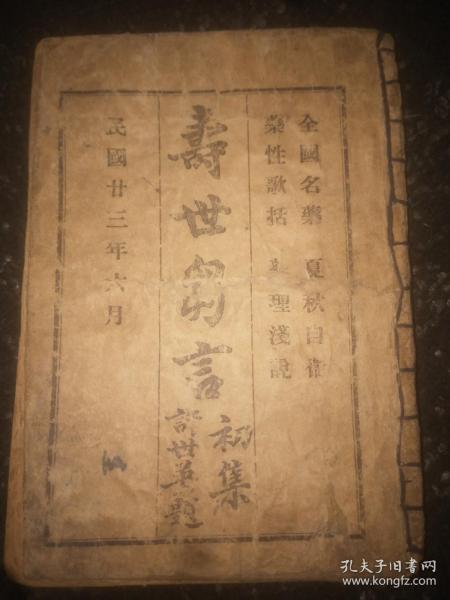 全國名藥 夏秋自衛
藥性歌括 理淺說
壽世芻言
初集
許世英題
民國廿三年六月
孔夫子旧书网
www.kongfz.com